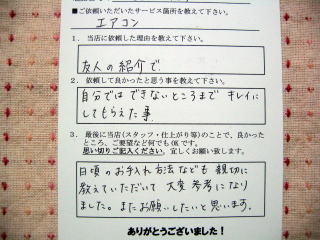 ■ご依頼いただいたサービス箇所を教えて下さい。
エアコン
1. 当店に依頼した理由を教えて下さい。
友人の紹介で.
2. 依頼して良かったと思う事を教えて下さい。
自分ではできないところまで キレイに
してもらえた事.
3. 最後に当店(スタッフ・仕上がり等)のことで、良かった
ところ、ご要望など何でもOKです。
思い切りご記入ください。宜しくお願い致します。
日頃のお手入れ方法なども 親切に
教えていただいて 大変 参考になり
ました。またお願いしたいと思います.
ありがとうございました!